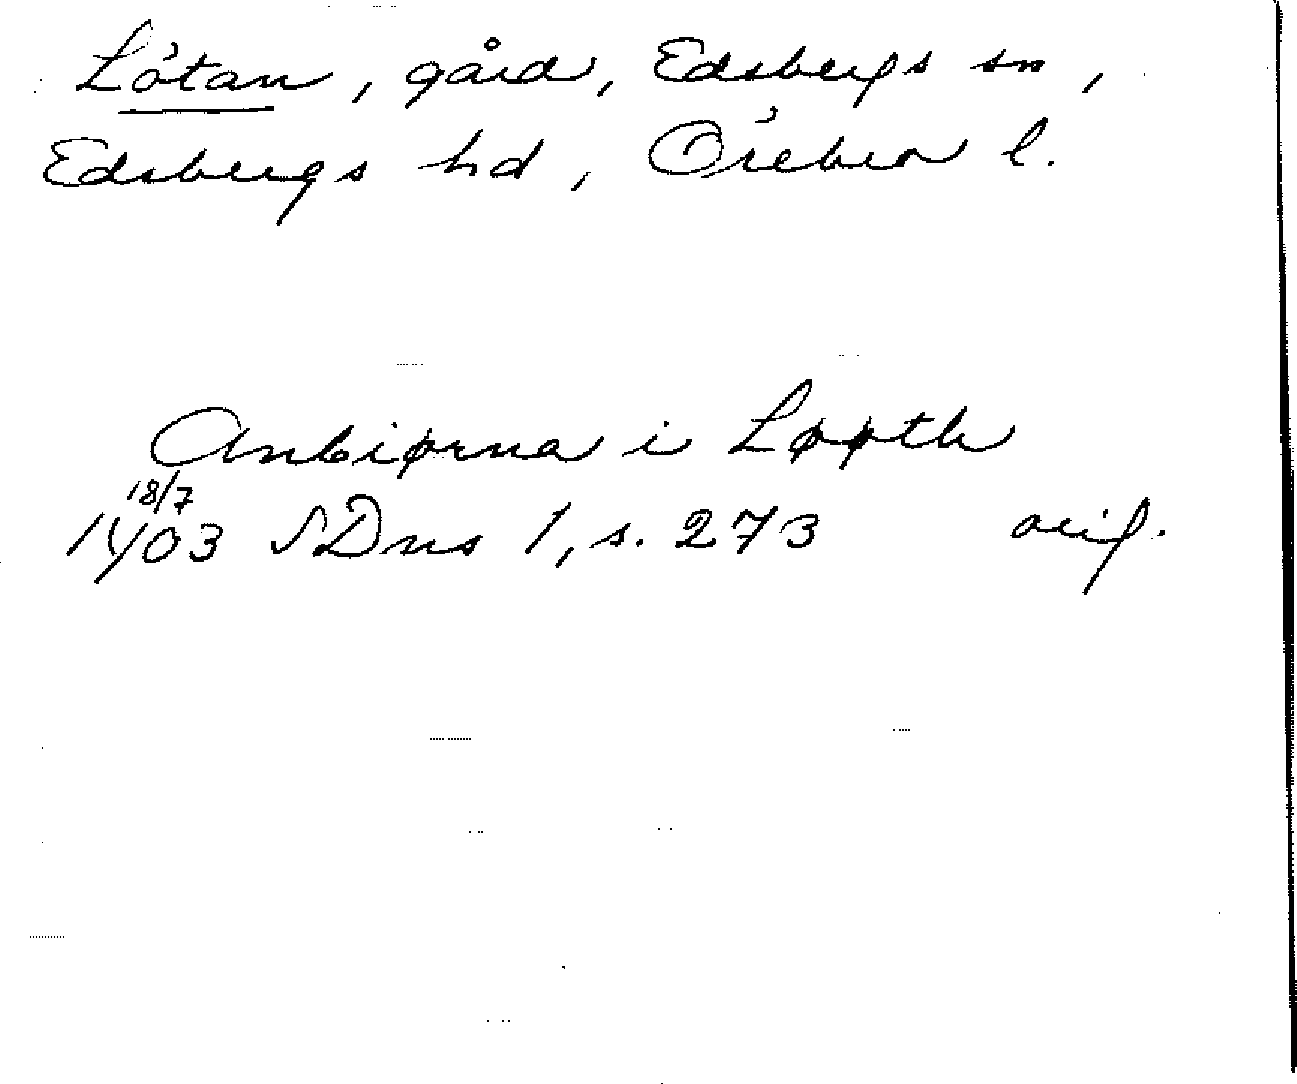 Lötan, gård, Edsbergs sn,
Edsbergs hd, Örebro l.
Anbiørna i Løøth
18/7
1403 SDns 1, s. 273 orig.